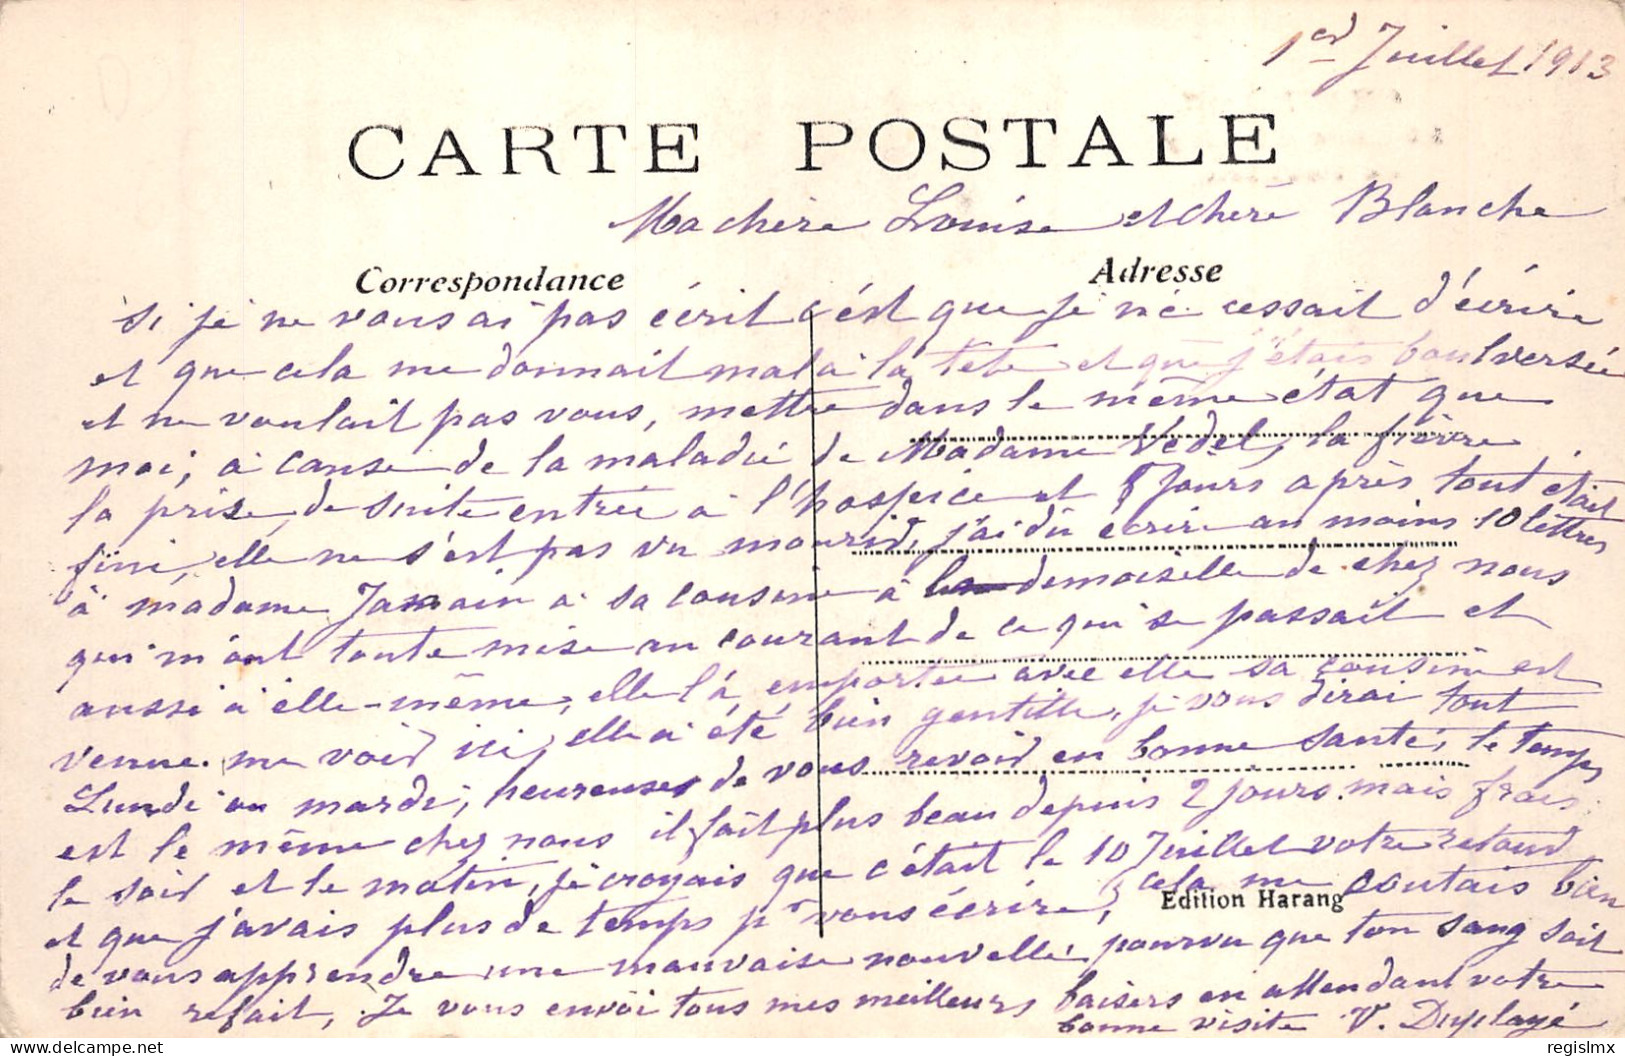 1er Juillet 1913
CARTE POSTALE
Ma chère Louise et chère Blanche
Correspondance
Adresse
Si je ne vous ai pas écrit c'est que je ne cessait d'écrire
et que cela me donnait mal à la tête et que j'étais boulversée
et ne voulait pas vous, mettre dans le même état que
moi, à cause de la maladie de Madame Vedel, la fièvre
la prise de suite entrée à l'hospice et 8 jours après tout était
fini, elle ne s'est pas vu mourir, j'ai dû écrire au moins 10 lettres
à madame Jamain à sa cousine à la demoiselle de chez nous
qui m'ont toute mise au courant de ce qui se passait et
aussi à elle-même, elle l'à emportée avec elle sa cousine est
venue me voir ici, elle à été bien gentille, je vous dirai tout
Lundi ou mardi, heureuse de vous revoir en bonne santé, le temps
est le même chez nous il fait plus beau depuis 2 jours mais frais
le soir et le matin, je croyais que c'était le 10 Juillet votre retour
et que j'avais plus de temps pr vous écrire, cela me coutais bien
Edition Harang
de vous apprendre une mauvaise nouvelle, pourvu que ton sang soit
bien refait, Je vous envoi tous mes meilleurs baisers en attendant votre
bonne visite V. Duplayé
© regislmx